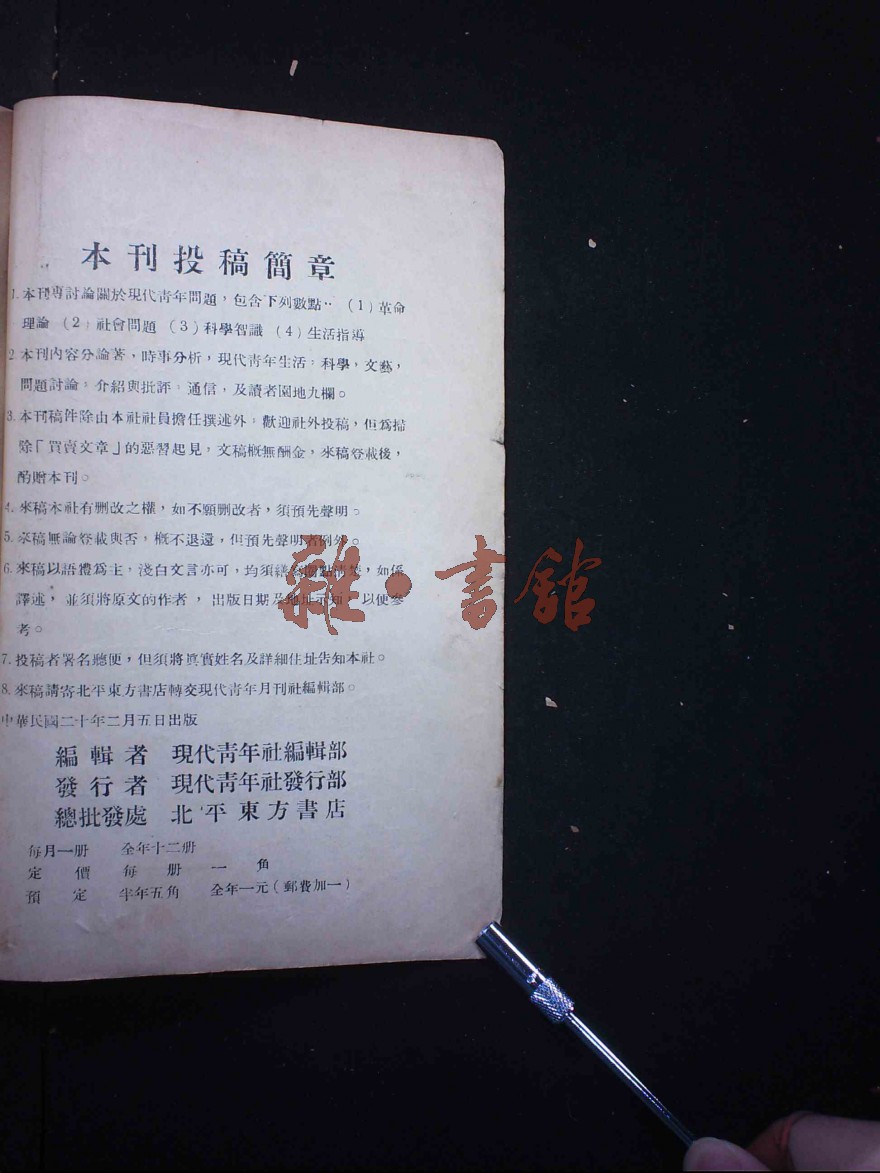 本刊投稿簡章
1. 本刊專討論關於現代青年問題，包含下列數點‥（1）革命
理論（2）社會問題（3）科學智識（4）生活指導
2. 本刊内容分論著，時事分析，現代青年生活，科學，文藝，
問題討論，介紹與批評，通信，及讀者園地九欄。
3. 本刊稿件除由本社社員擔任撰述外，歡迎社外投稿，但爲掃
除「買賣文章」的惡習起見，文稿槪無酬金，來稿登載後，
酌贈本刊。
4. 來稿本社有删改之權，如不願删改者，須預先聲明。
5. 來稿無論登載與否，槪不退還，但預先聲明者例外。
6. 來稿以語體爲主，淺白文言亦可，均須繕寫圈點清楚，如係
譯述，並須將原文的作者，出版日期及地址示知，以便參
考。
7. 投稿者署名聽便，但須將眞實姓名及詳細住址告知本社。
8. 來稿請寄北平東方書店轉交現代青年月刊社編輯部。
中華民國二十年二月五日出版
編輯者 現代靑年社編輯部
發行者 現代靑年社發行部
總批發處 北平東方書店
每月一册 全年十二册
定價 每册一角
預定 半年五角 全年一元（郵費加一）
雜·書館